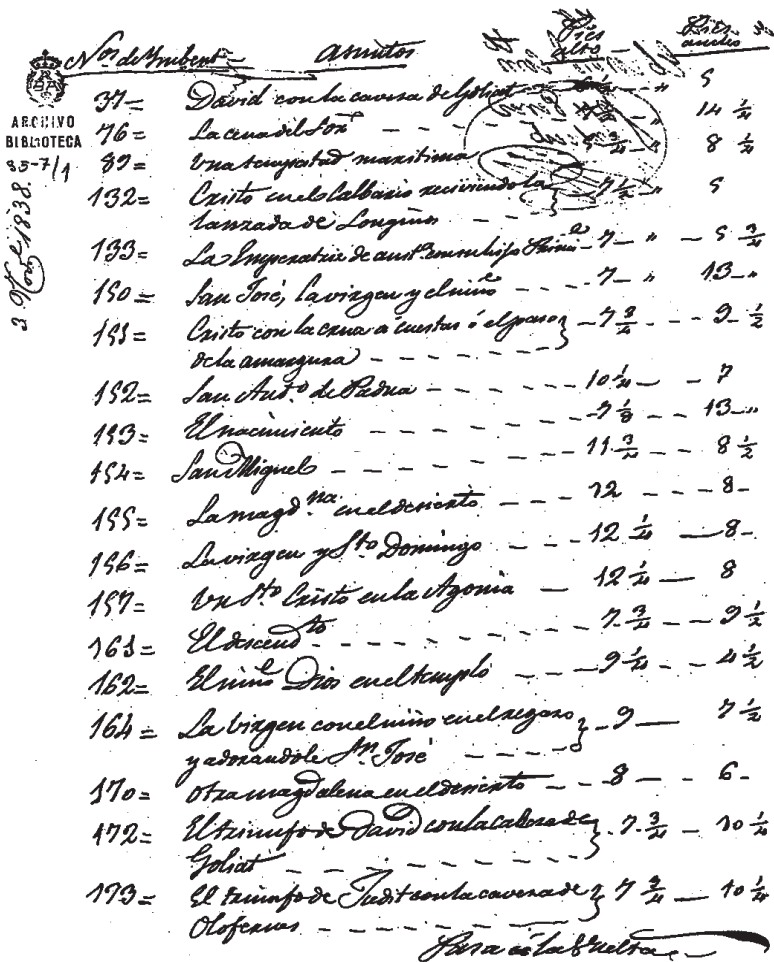 Nos. de Ymbent. Asuntos Pies alto Pies ancho
ARCHIVO
BIBLIOTECA
35-7/1
1838
37= David con la cavesa de Goliat - 5
76= La cena del Sor. - - - 14 1/2
89= Una tempestad maritima 5 3/4 - " 8 1/2
132= Cristo en el Calbario reciviendo la } 7 1/2 " 5
lanzada de Longinos - - -
133= La Emperatriz de aust.a con su hijo - 7 - " - 5 3/4
150= San José, la virgen y el niño - - - 7 - " 13 - "
151= Cristo con la cruz a cuestas ó el paso } - 7 3/4 - - - 9 - 1/2
de la amargura - - - -
152= San Ant.o de Padua - - - - - 10 1/4 - - 7
153= El nacimiento - - - - - - 7 1/8 - - 13 - "
154= San Miguel - - - - - - 11 3/4 - - 8 1/2
155= La magd.na en el desierto - - - 12 - - - 8 -
156= La virgen y Sto Domingo - - - 12 1/4 - 8 -
157= Un Sto Cristo en la Agonia - - - 12 1/4 - 8
161= El descend.to - - - - - - 7 3/4 - - 9 1/2
162= El niño Dios en el templo - - 9 1/4 - - 4 1/2
164= La birgen con el niño en el regazo } - 9 - 7 1/2
y adorandole Sn. José - - - -
170= Otra magdalena en el desierto - - 8 - - 6 -
172= El triunfo de David con la cabeza de } 7 3/4 - 10 1/4
Goliat - - - - - - -
173= El triunfo de Judit con la cavesa de } 7 3/4 - 10 1/4
Olofernes - - - - - -
Pasa á la Vuelta